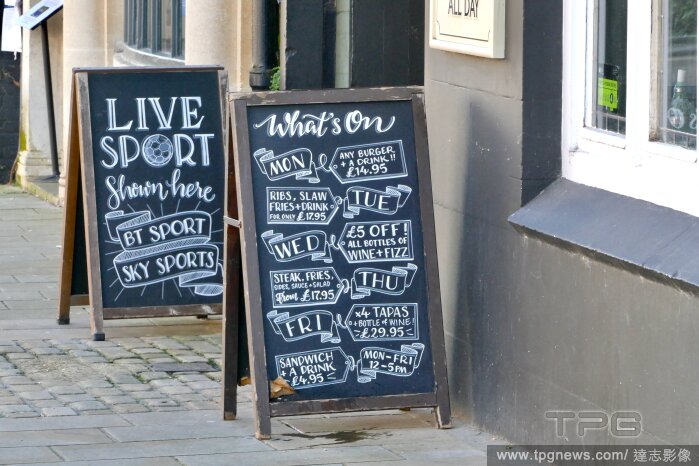 ALL DAY
LIVE
SPORT
Shown here
BT SPORT
SKY SPORTS
What's On
MON
ANY BURGER
+ A DRINK!!
£14.95
RIBS, SLAW
FRIES+DRINK
FOR ONLY £17.95
TUE
WED
£5 OFF!
ALL BOTTLES OF
WINE + FIZZ
STEAK, FRIES,
SIDES, SAUCE + SALAD
From £17.95
THU
FRI
x4 TAPAS
+ BOTTLE OF WINE!
£29.95
SANDWICH
+ A DRINK
£4.95
MON-FRI
12-5PM
TPG
www.tpgnews.com/ 達志影像